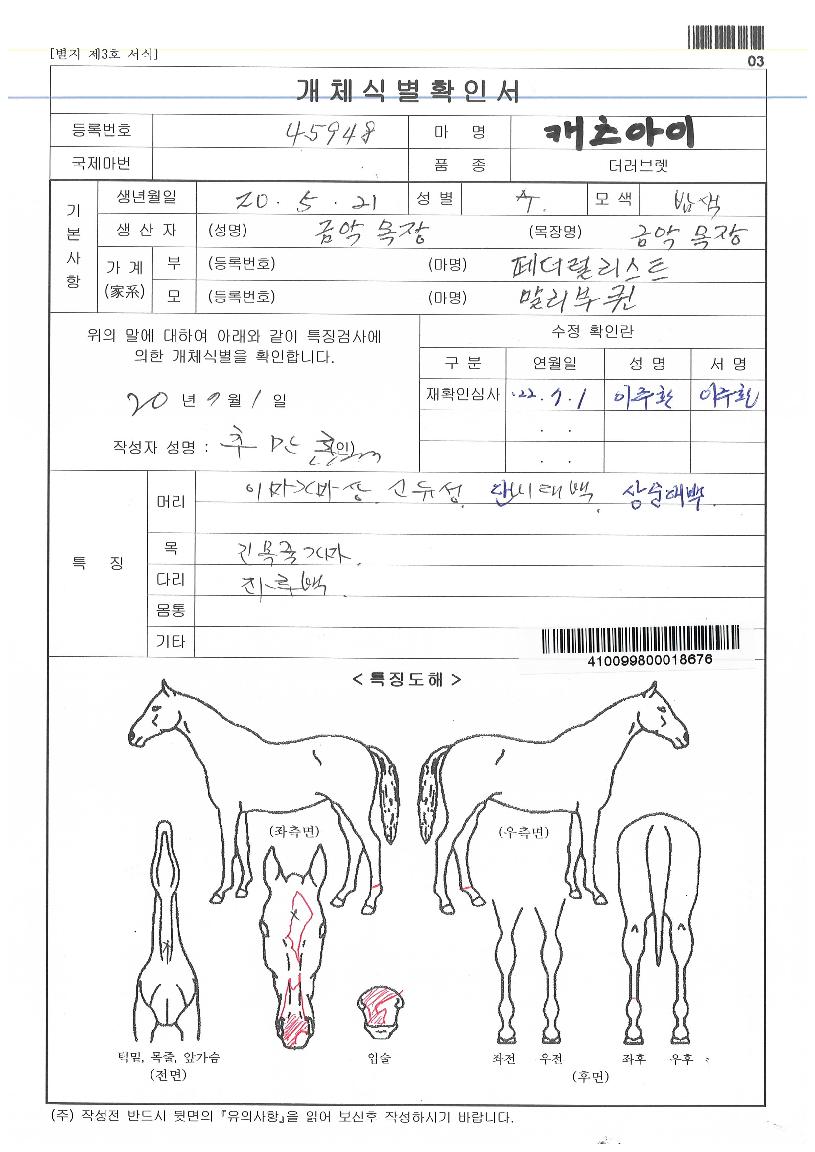 [별지 제3호 서식]
03
개체식별확인서
등록번호 45948 마 명 캐츠아이
국제마번 품 종 더러브렛
기본사항
생년월일 20. 5. 21 성 별 수. 모 색 밤색
생 산 자 (성명) 금악 목장 (목장명) 금악 목장
가 계 (家系)
부 (등록번호) (마명) 페더럴리스트
모 (등록번호) (마명) 말리부퀸
위의 말에 대하여 아래와 같이 특징검사에
의한 개체식별을 확인합니다.
20 년 9 월 1 일
작성자 성명 : 추 만 (인)
수정 확인란
구 분 연월일 성 명 서 명
재확인심사 '22. 9. 1 이주환 이주환
. .
. .
특 징
머리 이마가마상. 유성. 단비대백. 상순대백.
목 가마.
다리 좌후백.
몸통
기타
410099800018676
< 특징도해 >
(좌측면) (우측면)
턱밑, 목줄, 앞가슴 입술 좌전 우전 좌후 우후
(전면) (후면)
(주) 작성전 반드시 뒷면의 『유의사항』을 읽어 보신후 작성하시기 바랍니다.